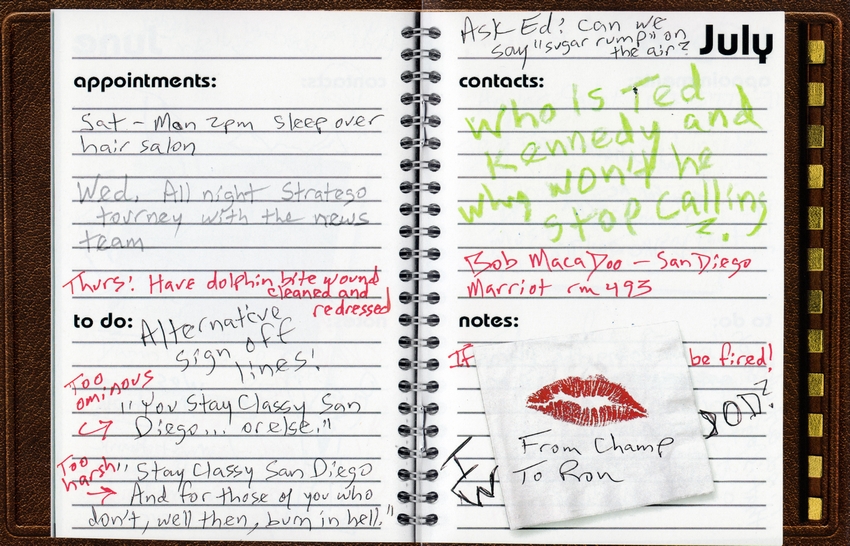 appointments:
Sat - Mon 2pm sleep over
hair salon
Wed. All night Stratego
tourney with the news
team
Thurs! Have dolphin bite wound
cleaned and
redressed
to do:
Alternative
sign off
lines!
Too
ominous
"You Stay Classy San
Diego... or else."
Too
harsh
"Stay Classy San Diego
And for those of you who
don't, well then, burn in hell."
Ask Ed! Can we
say "sugar rump" on
the air?
July
contacts:
Who Is Ted
Kennedy and
why won't he
stop calling
?
Bob MacaDoo - San Diego
Marriot rm 493
notes:
If
be fired!
From Champ
To Ron